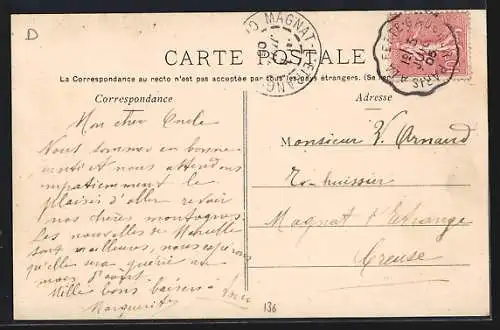 D
CARTE POSTALE
La Correspondance au recto n'est pas acceptée par tous les pays étrangers. (Se
Correspondance
Adresse
Mon cher Oncle
Nous sommes en bonne
santé et nous attendons
impatiemment le
plaisir d'aller revoir
nos chères montagnes
Les nouvelles de
sont meilleures, nous espérons
qu'elle sera guérie au
mois d'août.
Mille bons baisers
Marguerite
Monsieur V. Arnaud
Ex-huissier
Magnat l'Etrange
Creuse
136